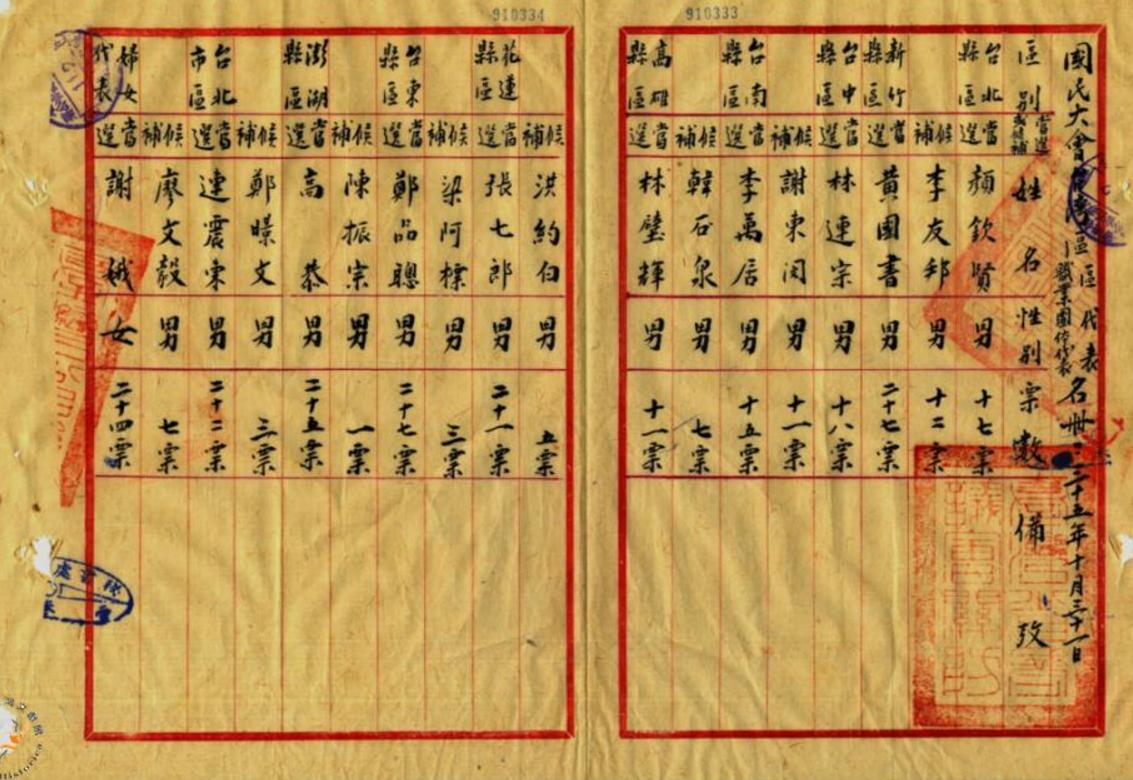 910333
國民大會臺灣區區代表職業團体代表名冊 三十五年十月三十一日
區別 當選或候補 姓名 性別 票數 備攷
台北縣區 當選 顏欽賢 男 十七票
候補 李友邦 男 十二票
新竹縣區 當選 黃國書 男 二十七票
台中縣區 當選 林連宗 男 十八票
候補 謝東閔 男 十一票
台南縣區 當選 李萬居 男 十五票
候補 韓石泉 男 七票
高雄縣區 當選 林璧輝 男 十一票
910334
候補 洪約白 男 五票
花蓮縣區 當選 張七郎 男 二十一票
候補 梁阿標 男 三票
台東縣區 當選 鄭品聰 男 二十七票
候補 陳振宗 男 一票
澎湖縣區 當選 高恭 男 二十五票
候補 鄭文 男 三票
台北市區 當選 連震東 男 二十二票
候補 廖文毅 男 七票
婦女代表 當選 謝娥 女 二十四票